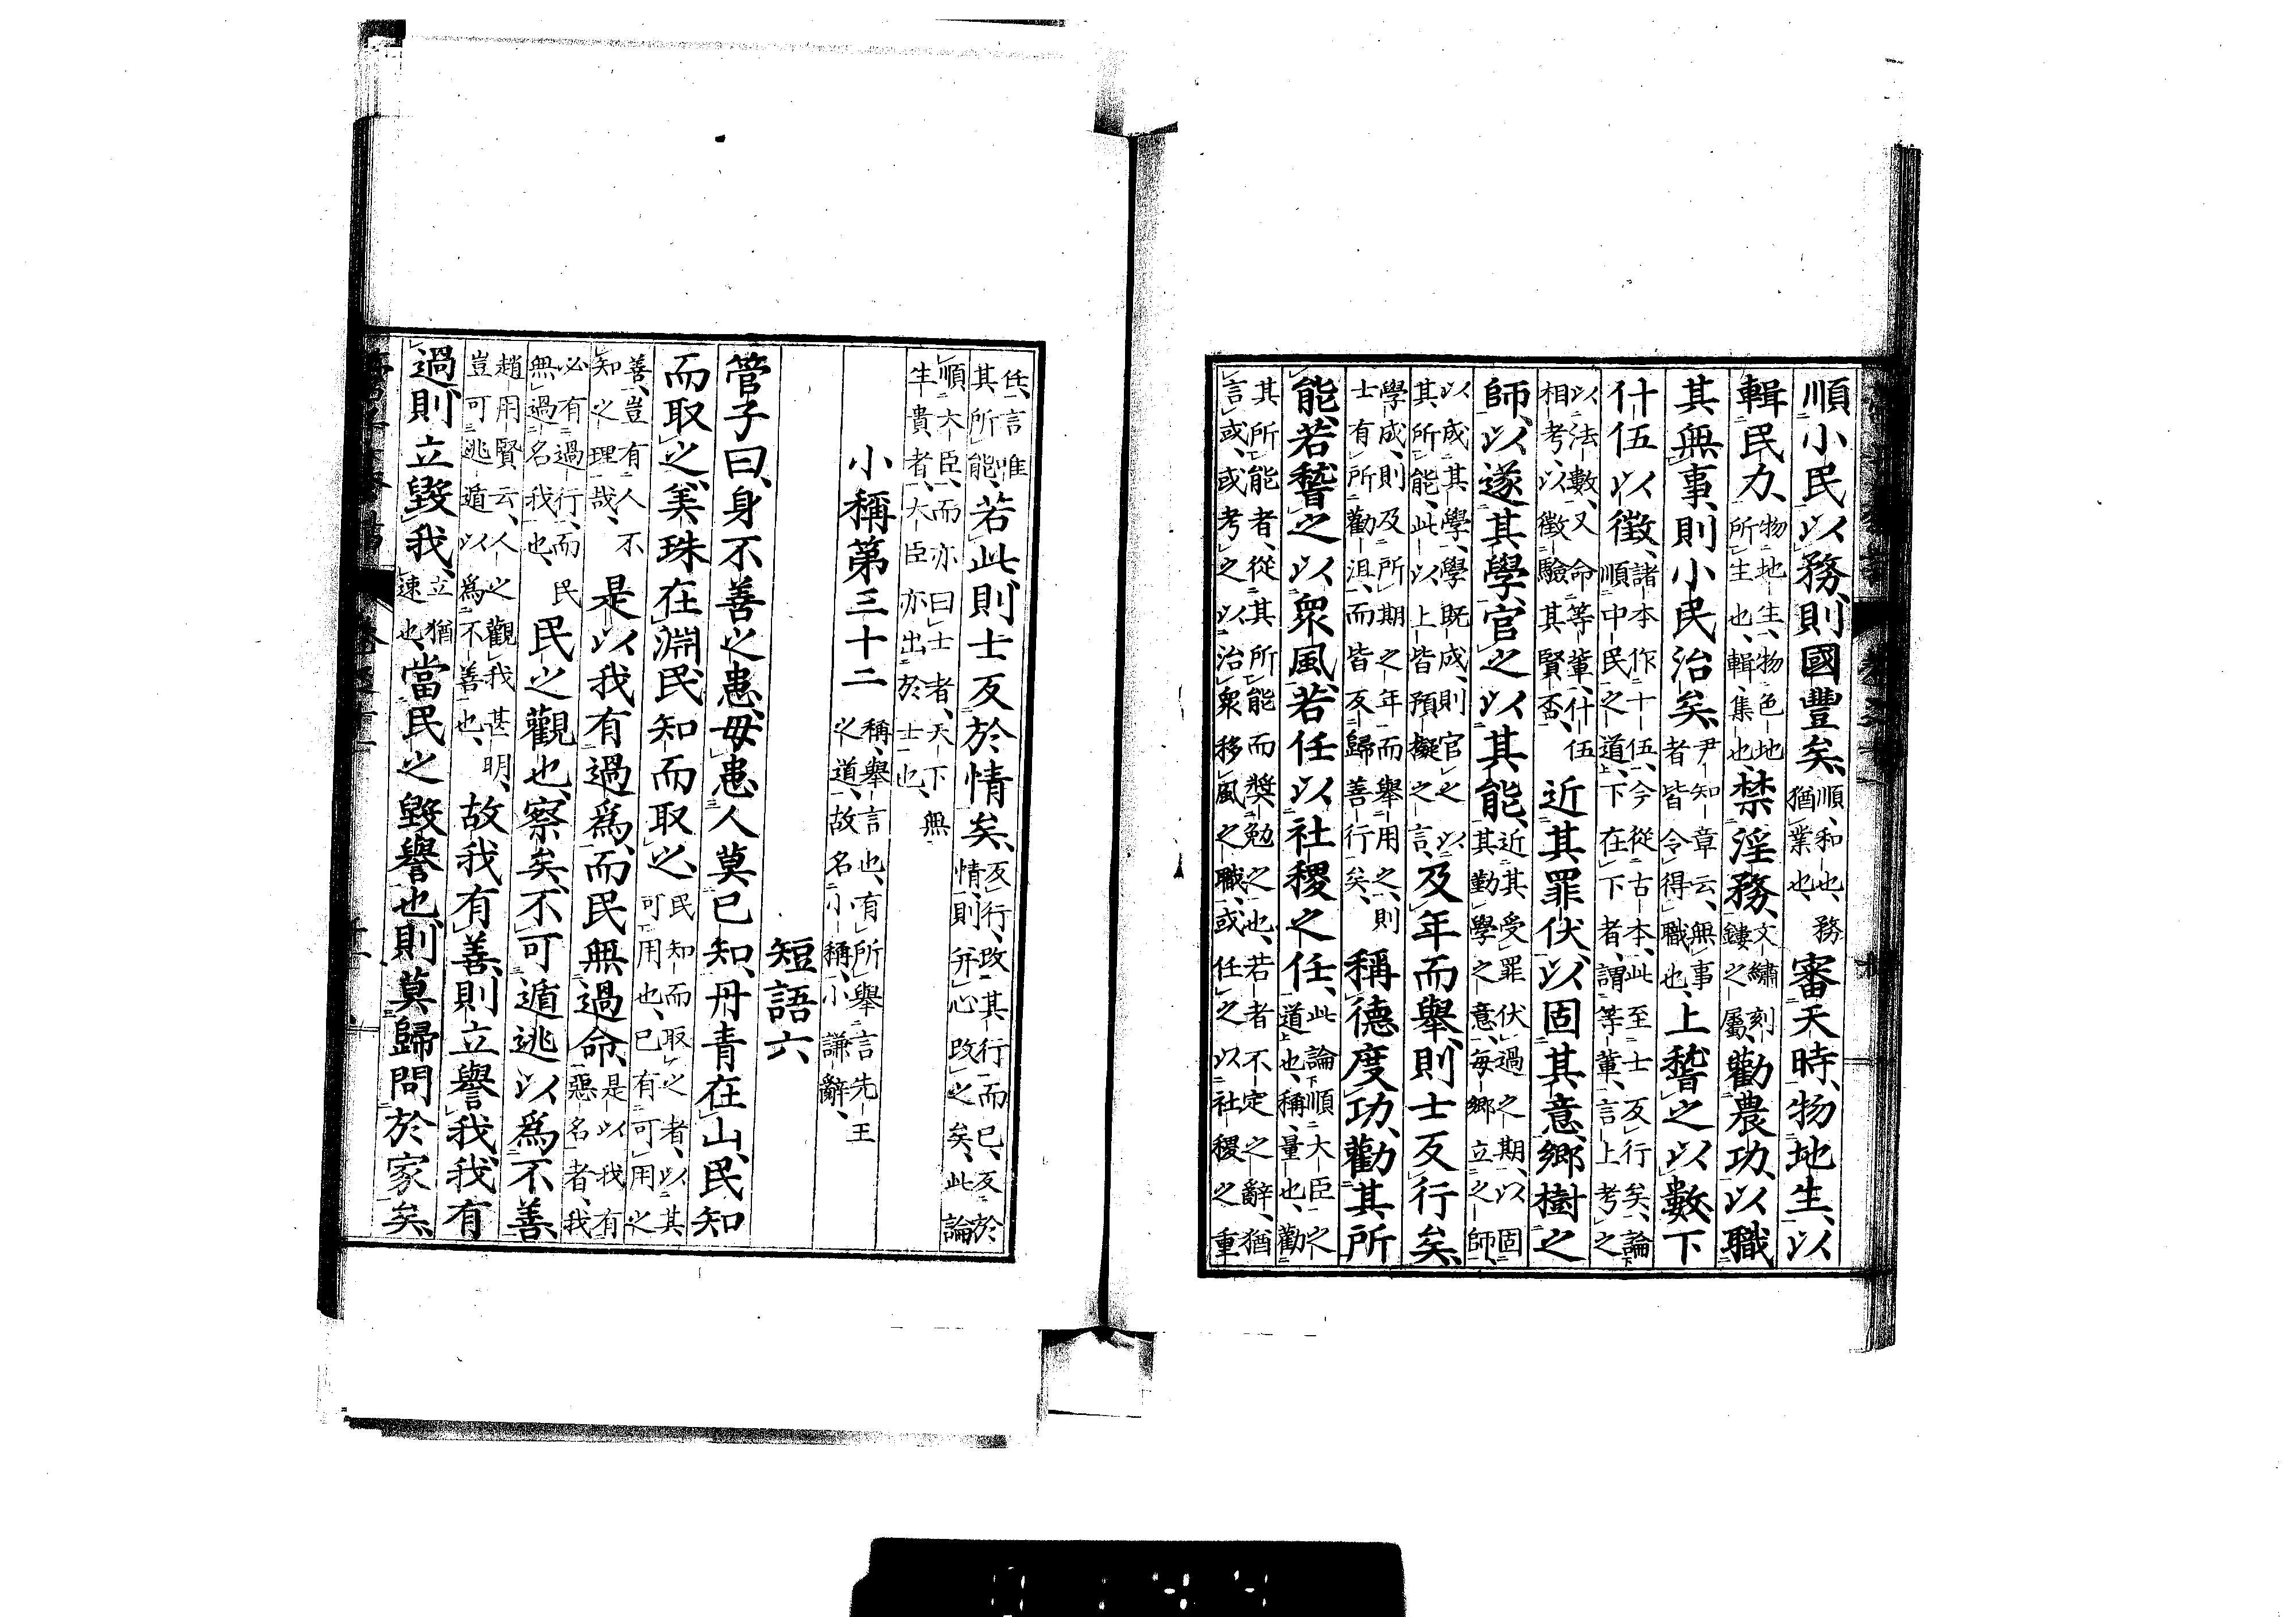 順小民以務、則國豐矣、順、和也、務猶業也、審天時、物地生、以
輯民力、物地生、物色地所生也、輯、集也、禁淫務、文繡刻鏤之屬、勸農功、以職
其無事、則小民治矣、尹知章云、無事者皆令得職也、上稽之以數、下
什伍以徵、諸本作十伍、今從古本、此至士反行矣、論順中民之道、下在下者、謂等輩、言上考之
以法數、又命等輩什伍相考、以徵驗其賢否、近其罪伏、以固其意、鄉樹之
師、以遂其學、官之以其能、近其受罪伏過之期、以固其勤學之意、每鄉立之師、
以成其學、學既成、則官之以其所能、此以上皆預擬之言、及年而舉、則士反行矣、
學成、則及所期之年而舉用之、則士有所勸沮、而皆反歸善行矣、稱德度功、勸其所
能、若稽之以衆風、若任以社稷之任、此論順大臣之道也、稱、量也、勸
其所能者、從其所能而奬勉之也、若者不定之辭、猶言或、或考之以治衆移風之職、或任之以社稷之重
任、言唯其所能、若此、則士反於情矣、反行、改其行而已、反於情、則幷心改之矣、此論
順大臣、而亦曰士者、天下無生貴者、大臣亦出於士也、
小稱第三十二 稱、舉言也、有所舉言先王之道、故名小稱、小謙辭、
短語六、
管子曰、身不善之患、毋患人莫己知、丹青在山、民知
而取之、美珠在淵、民知而取之、民知而取之者、以其可用也、己有可用之
善、豈有人不知之理哉、是以我有過爲、而民無過命、是以我有惡名者、我
必有過行、而民無過名我也、民之觀也、察矣、不可遁逃以爲不善、
趙用賢云、人之觀我甚明、豈可逃遁以爲不善也、故我有善、則立譽我、我有
過、則立毀我、立猶速也、當民之毀譽也、則莫歸問於家矣、